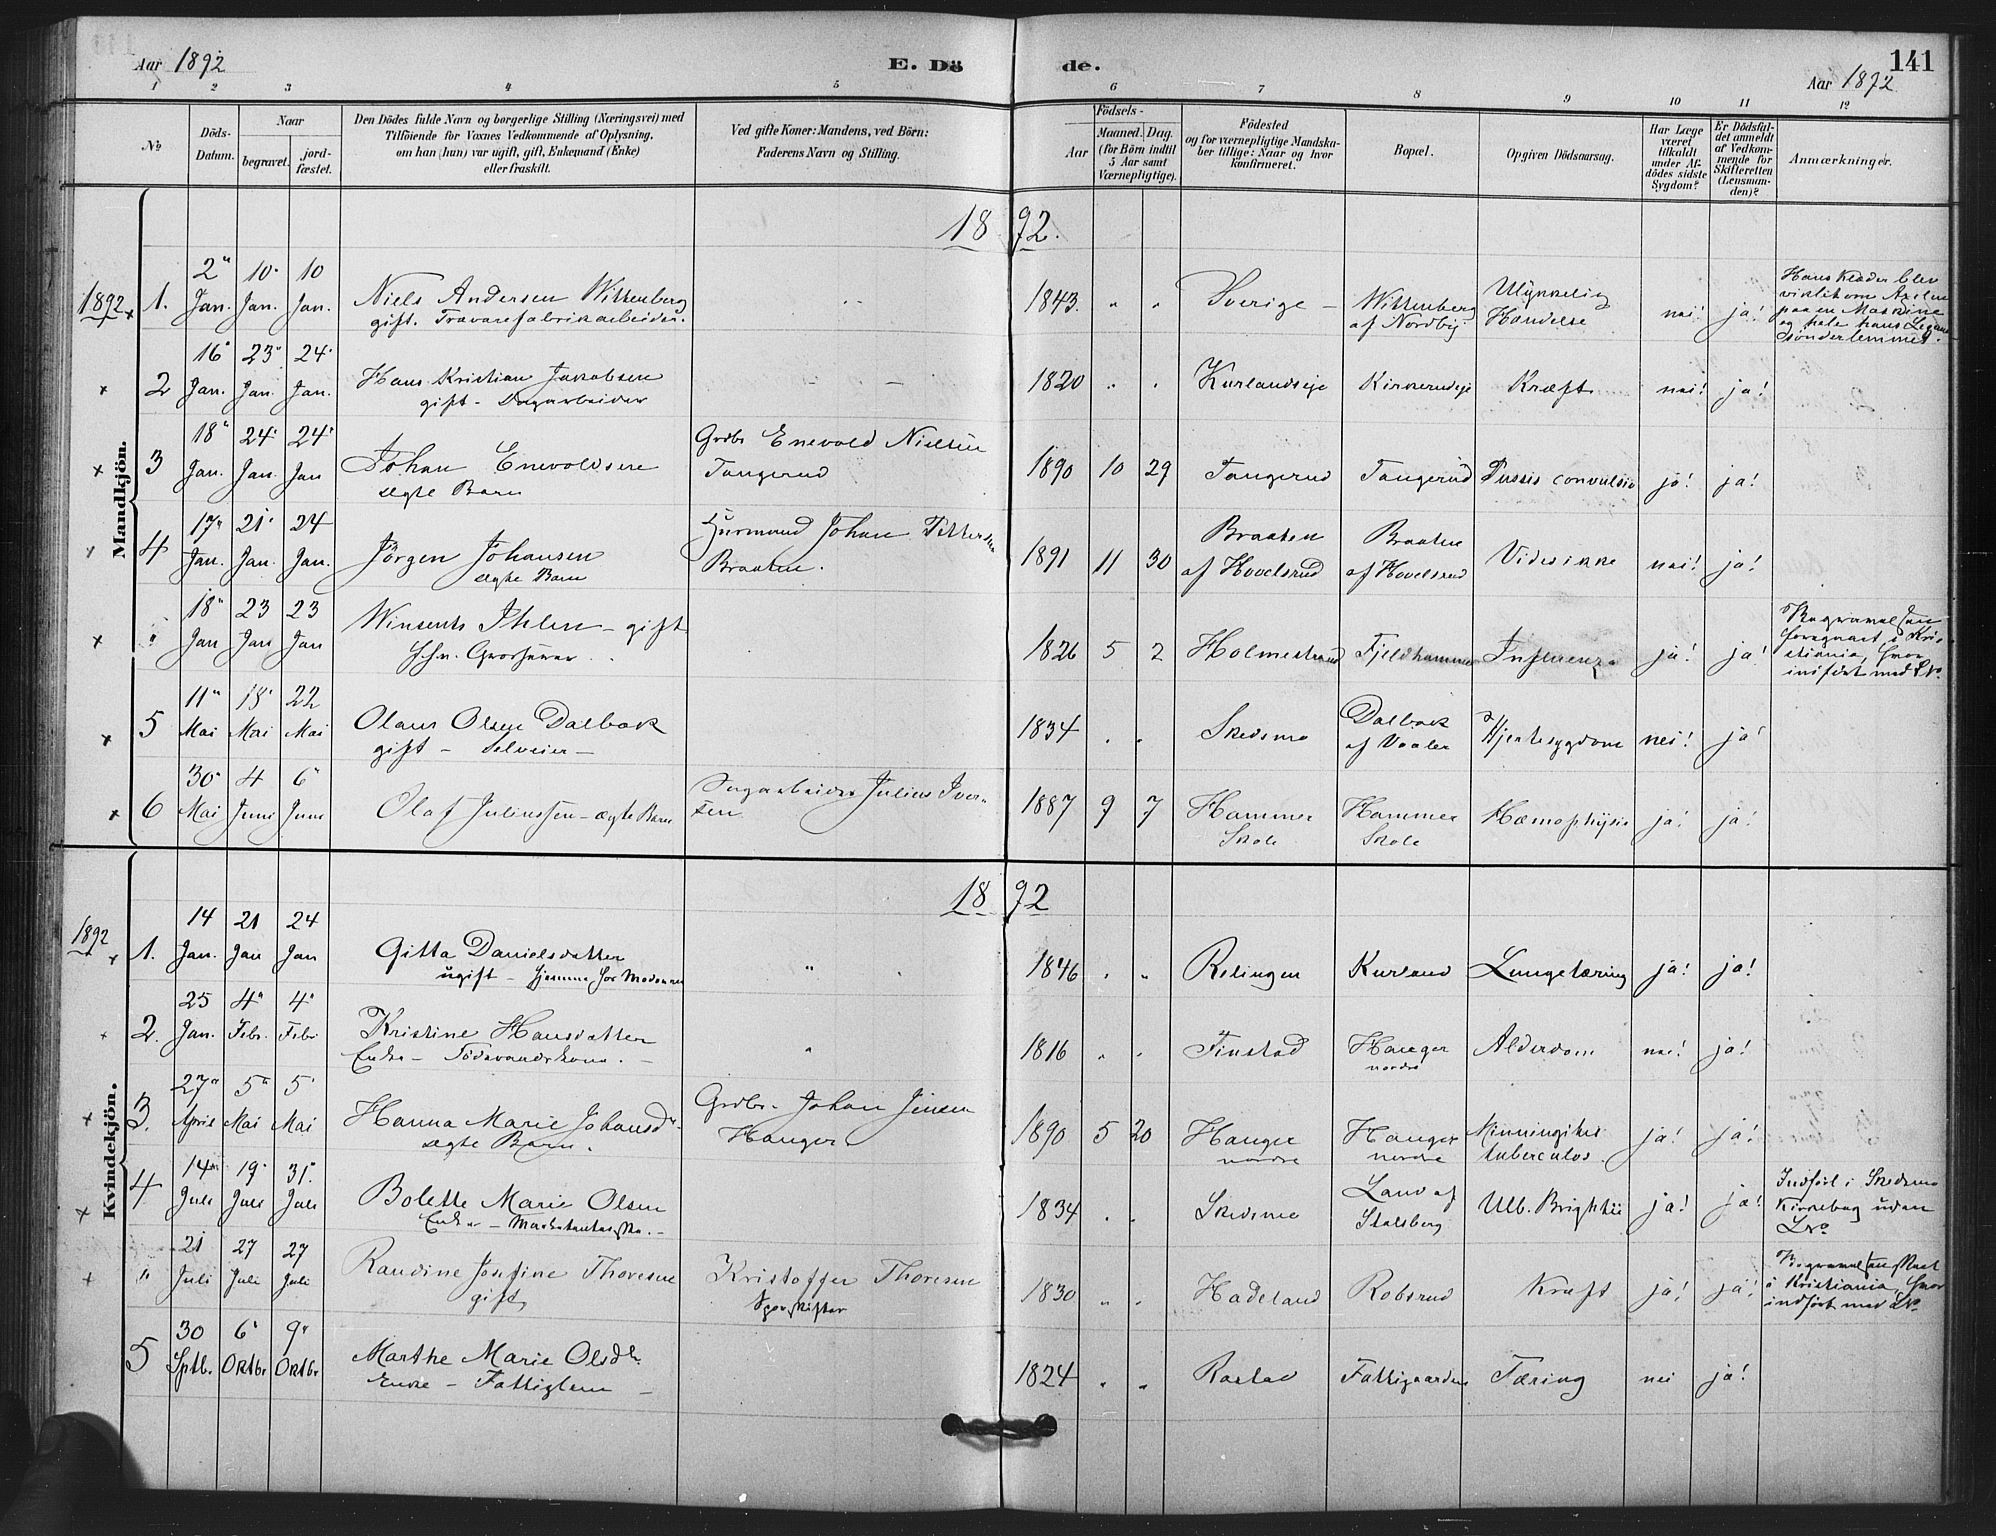 Aar 1892
E. Dö
de.
141
Aar 1892
1 2 3 4 5 6 7 8 9 10 11 12
No
Döds-
Datum.
Naar
begravet.
jord-
fæstet.
Den Dödes fulde Navn og borgerlige Stilling (Næringsvei) med
Tilföiende for Voxnes Vedkommende af Oplysning,
om han (hun) var ugift, gift, Enkemand (Enke)
eller fraskilt.
Ved gifte Koner: Mandens, ved Börn:
Faderens Navn og Stilling.
Födsels-
Aar
Maaned.
Dag.
(for Börn indtil
5 Aar samt
Værnepligtige).
Födested
og for værnepligtige Mandska-
ber tillige: Naar og hvor
konfirmeret.
Bopæl.
Opgiven Dödsaarsag.
Har Læge
været
tilkaldt
under Af-
dödes sidste
Sygdom?
Er Dödsfal-
det anmeldt
af Vedkom-
mende for
Skifteretten
(Lensman-
den)?
Anmærkninger.
1892.
Mandkjön.
1892
1. 2 Jan. 10 Jan. 10 Jan.
Niels Andersen Wittenberg
gift. Trævarefabrikarbeider.
1843 " " Sverige - Wittenberg
af Nordby. Ulykkelig
Hændelse nei! ja!
Hans Klæder blev
viklet om Axelen
paa en Maskine
og hele hans Legeme
sønderlemmet.
2 16 Jan. 23 Jan. 24 Jan.
Hans Kristian Jakobsen
gift - Dagarbeider
1820 " " Kurlandseje Kirkerudeje Kræft nei! ja!
3 18 Jan. 24 Jan. 24 Jan
Johan Enevoldsen
ægte Barn
Grdbr Enevold Nielsen
Tangerud
1890 10 29 Tangerud Tangerud Tussis convulsiv ja! ja!
4 17 Jan. 21 Jan. 24 Jan.
Jörgen Johansen
ægte Barn
Husmand Johan Pettersen
Braaten.
1891 11 30 Braaten
af Hovelsrud Braaten
af Hovelsrud Vides ikke nei! ja!
" 18 Jan 23 Jan 23 Jan
Winsents Ihlen - gift
fhv. Grosserer
1826 5 2 Holmestrand Fjeldhammer Influenza ja! ja!
Begravelsen
foregaaet i Kri-
stiania, hvor
indført med No
5 11 Mai 18 Mai 22 Mai
Olaus Olsen Dalbak
gift - Selveier -
1834 " " Skedsmo Dalbak
af Vaaler Hjertesygdom nei! ja!
6 30 Mai 4 Juni 6 Juni
Olaf Juliussen - ægte Barn
Dagarbeider Julius Iver-
sen
1887 9 7 Hammer
Skole Hammer
Skole Hæmophysis ja! ja!
1892
Kvindekjön.
1892
1. 14 Jan. 21 Jan 24 Jan
Gitta Danielsdatter
ugift - hjemme hos Moderen
" 1846 " " Relingen Kurland Lungetæring ja! ja!
2. 25 Jan. 4 Febr. 4 Febr
Kristine Hansdatter
Enke - Födevaadskone. -
" 1816 " " Finstad Hauger
nordre Alderdom nei! ja!
3. 27 April 5 Mai 5 Mai
Hanna Marie Johansdr.
ægte Barn.
Grdbr. Johan Jensen
Hauger
1890 5 20 Hauger
nordre Hauger
nordre Minningites
tuberculos. ja! ja!
4 14 Juli 19 Juli 31. Juli
Bolette Marie Olsen
Enke -
1834 " " Skedsmo Land af
Stalsberg Ulb. Brightii ja! ja!
Indført i Skedsmo
Kirkebog uden
No
" 21 Juli 27 Juli 27 Juli
Randine Josefine Thoresen
gift
Kristoffer Thoresen
Sporskifter
1830 " " Hadeland Robsrud Kræft ja! ja!
Begravelsen skeet
i Kristiania, hvor
indført med No
5 30 Sptb. 6 Oktbr 9 Oktbr
Marthe Marie Olsdtr.
Enke - Fattiglem -
1824 " " Rastad Fattiggaarden Tæring nei ja!